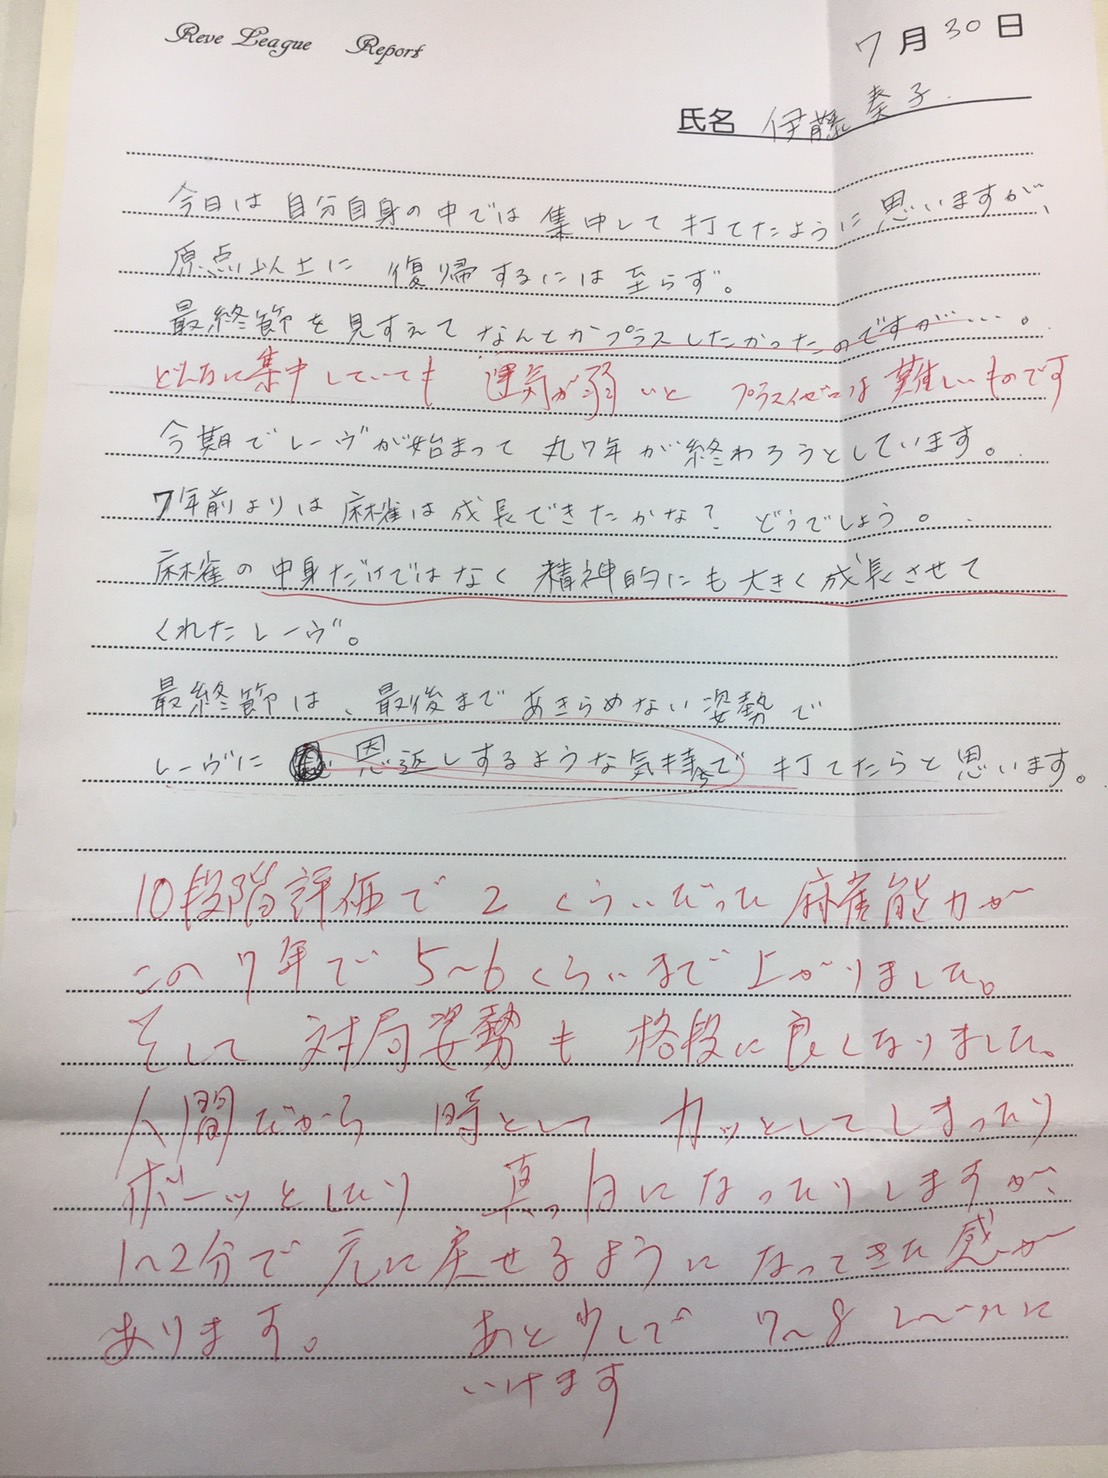 Reve League Report
7月30日
氏名 伊藤奏子
今日は自分自身の中では集中して打てたように思いますが、
原点以上に復帰するには至らず。
最終節を見すえてなんとかプラスしたかったのですが…。
どんなに集中していても 運気が弱いと プラスイゼロは難しいものです
今期でレーヴが始まって丸7年が終わろうとしています。
7年前よりは麻雀は成長できたかな? どうでしょう。
麻雀の中身だけではなく精神的にも大きく成長させて
くれたレーヴ。
最終節は、最後まであきらめない姿勢で
レーヴに恩返しするような気持ちで打てたらと思います。
10段階評価で2くらいだった麻雀能力が
この7年で5~6くらいまで上がりました。
そして対局姿勢も格段に良くなりました。
人間だから時としてカッとしてしまったり
ボーッとしたり真っ白になったりしますが、
1~2分で元に戻せるようになってきた感が
あります。 あと少しで7~8レベルに
いけます